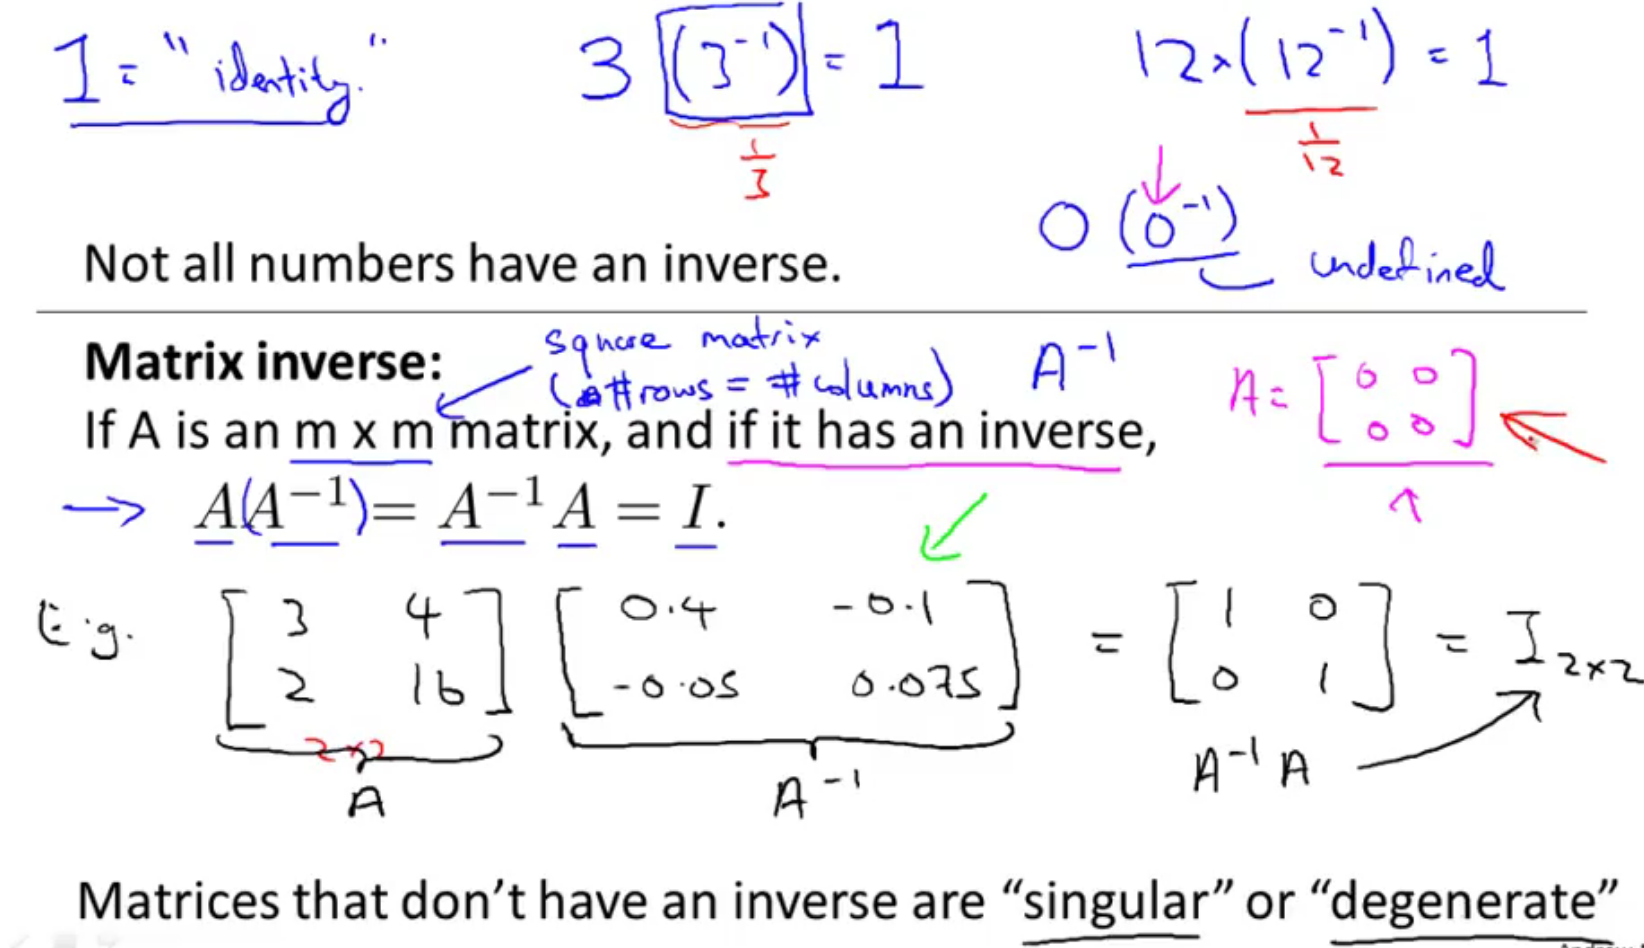 1 = "identity."
3 (3⁻¹) = 1
12 × (12⁻¹) = 1
1/3
1/12
0 (0⁻¹)
undefined
Not all numbers have an inverse.
Matrix inverse:
square matrix
(#rows = #columns)
A⁻¹
A = [0 0
0 0]
If A is an m x m matrix, and if it has an inverse,
→ A(A⁻¹) = A⁻¹A = I.
E.g. [3 4 [0.4 -0.1 = [1 0 = I 2×2
2 16] -0.05 0.075] 0 1]
2×2
A
A⁻¹
A⁻¹ A
Matrices that don't have an inverse are “singular” or “degenerate”